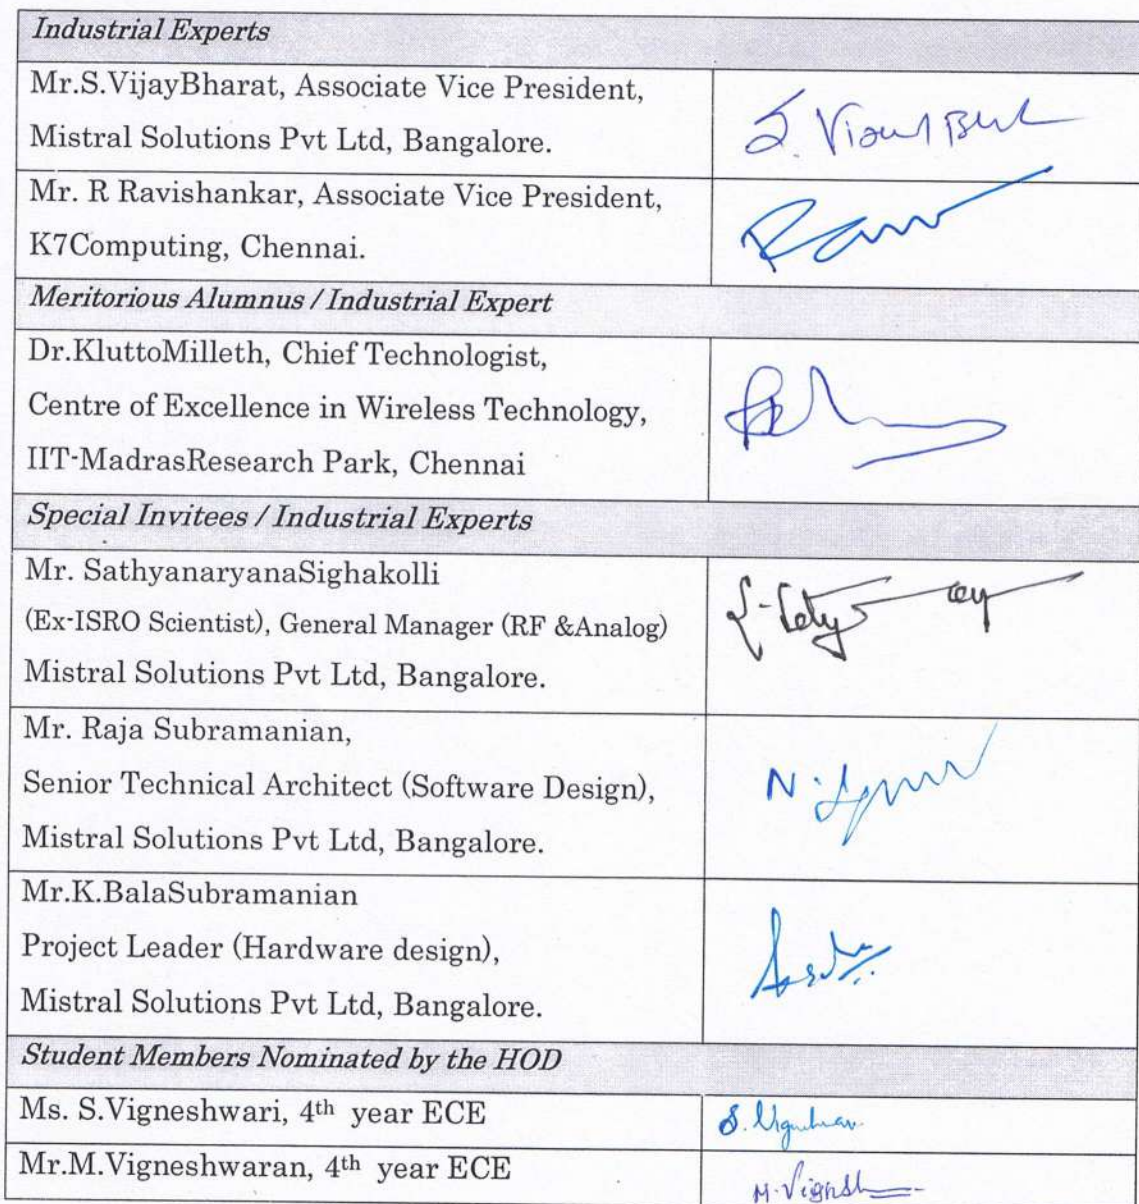 Industrial Experts
Mr.S.VijayBharat, Associate Vice President,
Mistral Solutions Pvt Ltd, Bangalore.
Mr. R Ravishankar, Associate Vice President,
K7Computing, Chennai.
Meritorious Alumnus / Industrial Expert
Dr.KluttoMilleth, Chief Technologist,
Centre of Excellence in Wireless Technology,
IIT-MadrasResearch Park, Chennai
Special Invitees / Industrial Experts
Mr. SathyanaryanaSighakolli
(Ex-ISRO Scientist), General Manager (RF &Analog)
Mistral Solutions Pvt Ltd, Bangalore.
Mr. Raja Subramanian,
Senior Technical Architect (Software Design),
Mistral Solutions Pvt Ltd, Bangalore.
Mr.K.BalaSubramanian
Project Leader (Hardware design),
Mistral Solutions Pvt Ltd, Bangalore.
Student Members Nominated by the HOD
Ms. S.Vigneshwari, 4th year ECE
Mr.M.Vigneshwaran, 4th year ECE